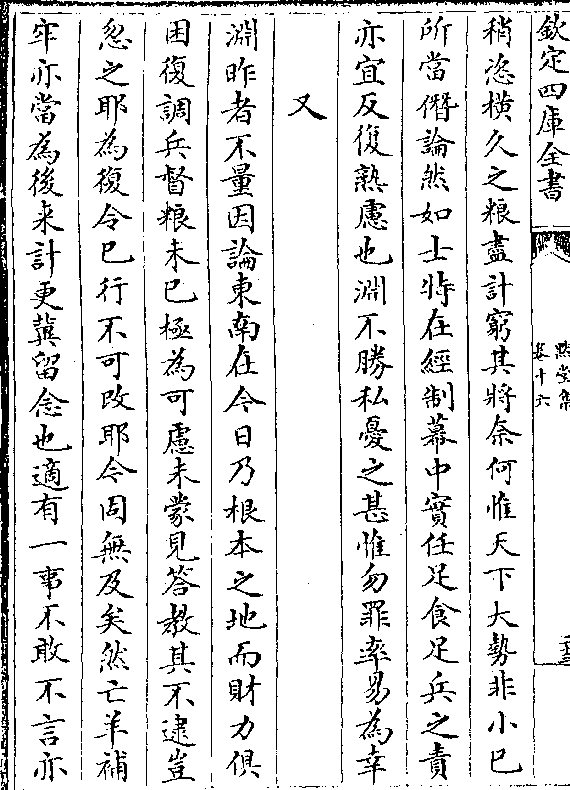 欽定四庫全書
卷十六
稍恣橫久之粮盡計窮其將奈何惟天下大勢非小已
所當僭論然如士特在經制幕中實任足食足兵之責
亦宜反復熟慮也淵不勝私憂之甚惟勿罪率易為幸
又
淵昨者不量因論東南在今日乃根本之地而財力俱
困復調兵督粮未已極為可慮未蒙見答教其不逮豈
忽之耶為復令已行不可改耶令固無及矣然亡羊補
牢亦當為後来計更冀留念也適有一事不敢不言亦